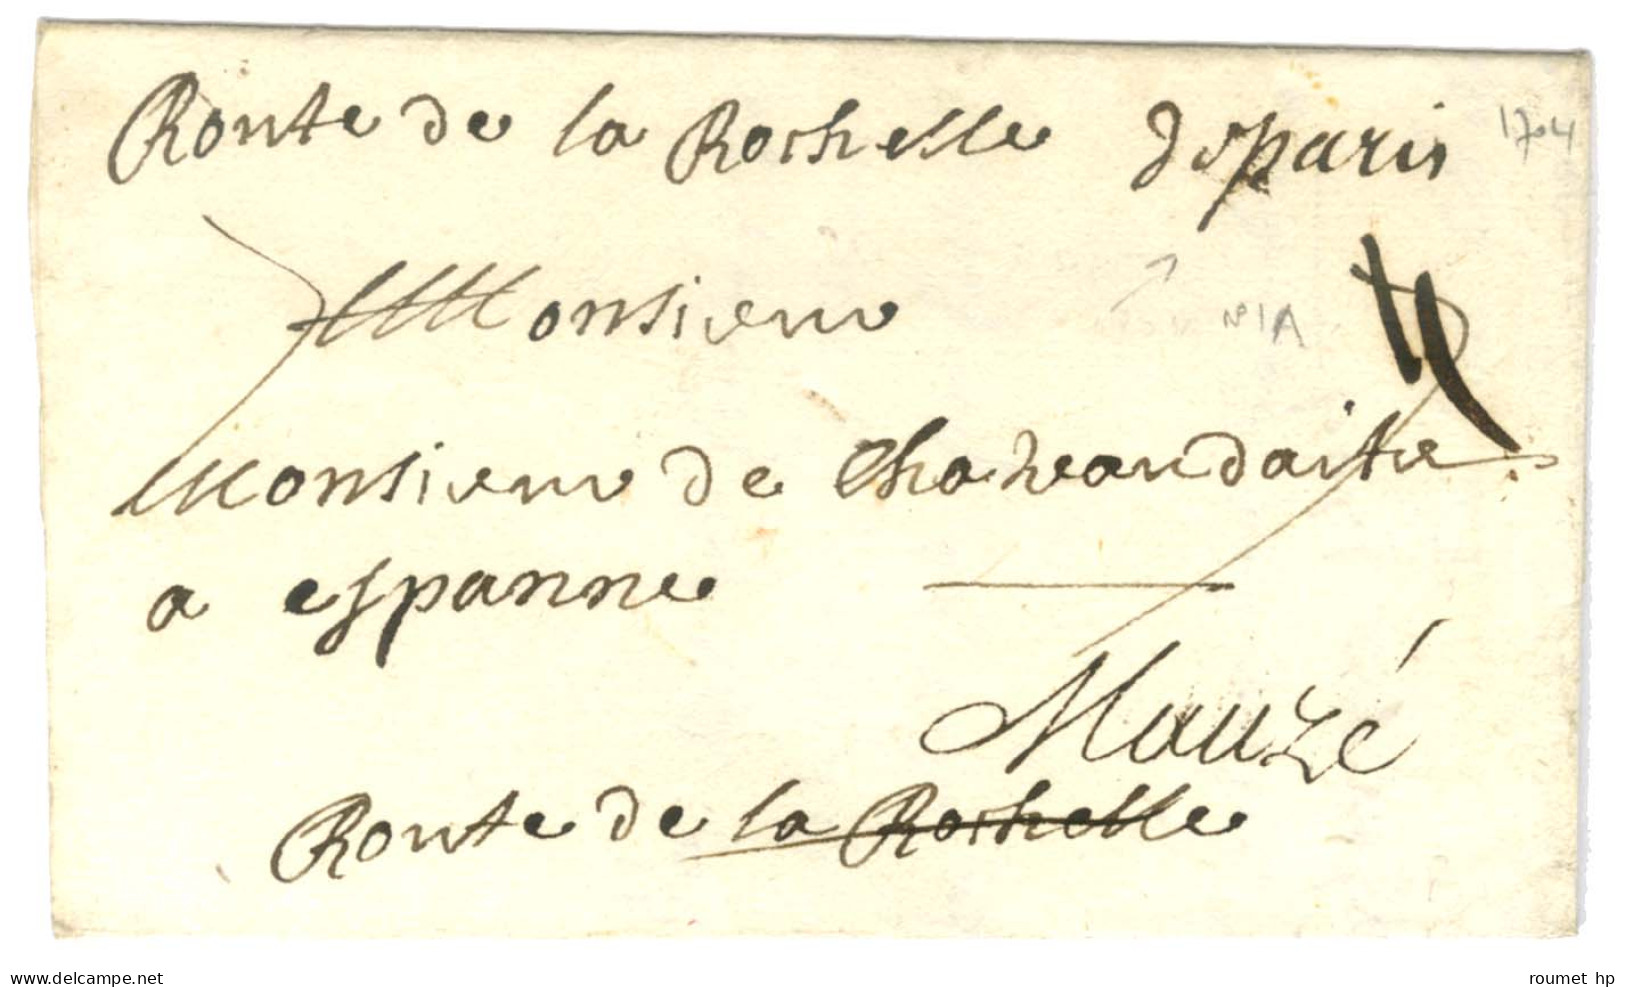 Route de la Rochelle de paris 1704
Monsieur
N°1A
Monsieur de
a espanne
Mauzé
Route de la Rochelle
www.delcampe.net
roumet hp